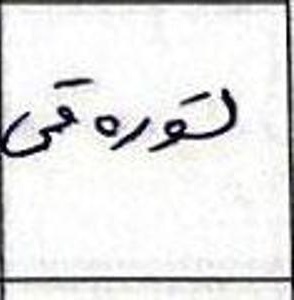 لتوره قی